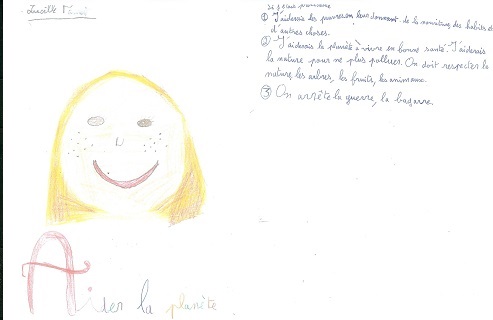 Lucille
si j'étais
① J'aiderais les pauvres en leur donnant de la nourriture des habits et
d'autres choses.
② J'aiderais la planète à vivre en bonne santé. J'aiderais
la nature pour ne plus polluer. On doit respecter la
nature les arbres, les fruits, les animaux.
③ On arrête la guerre, la bagarre.
Aider la planète